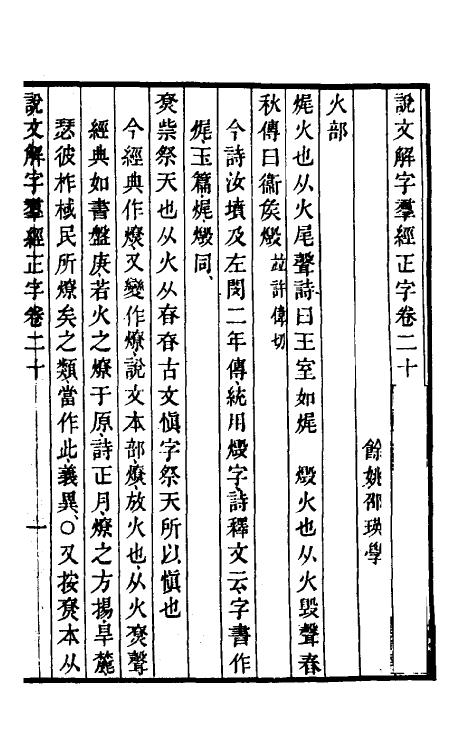 說文解字羣經正字卷二十
餘姚邵瑛學
火部
焜火也从火尾聲詩曰王室如焜 燬火也从火毀聲春
秋傳曰衞矦燬 竝許偉切
今詩汝墳及左閔二年傳統用燬字詩釋文云字書作
焜玉篇焜燬同
尞祡祭天也从火从昚昚古文愼字祭天所以愼也
今經典作燎又變作燎說文本部燎放火也从火尞聲
經典如書盤庚若火之燎于原詩正月燎之方揚旱麓
瑟彼柞棫民所燎矣之類當作此義異○又按尞本从
說文解字羣經正字卷二十 一